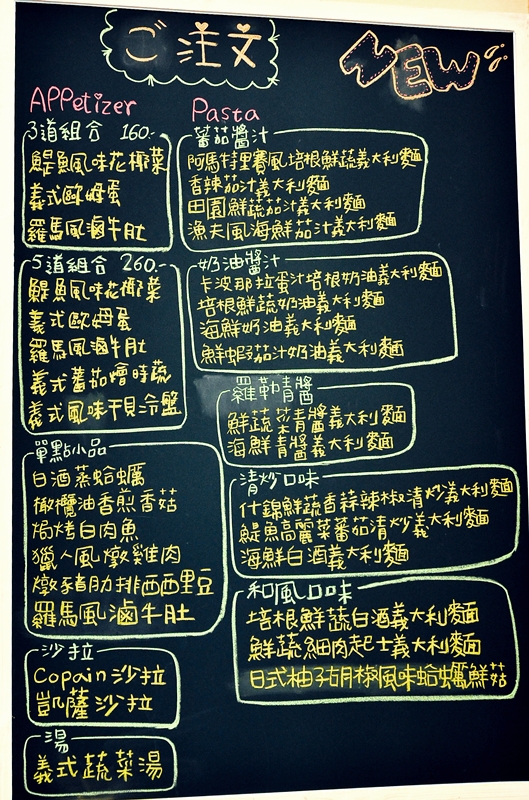 ご注文
NEW
APPetizer
3道組合 160.-
鯷魚風味花椰菜
義式歐姆蛋
羅馬風滷牛肚
5道組合 260.-
鯷魚風味花椰菜
義式歐姆蛋
羅馬風滷牛肚
義式蕃茄燴時蔬
義式風味干貝冷盤
單點小品
白酒蒸蛤蠣
橄欖油香煎香菇
焗烤白肉魚
獵人風燉雞肉
燉豬肋排西西里豆
羅馬風滷牛肚
沙拉
Copain沙拉
凱薩沙拉
湯
義式蔬菜湯
Pasta
蕃茄醬汁
阿馬特里賽風培根鮮蔬義大利麵
香辣茄汁義大利麵
田園鮮蔬茄汁義大利麵
漁夫風海鮮茄汁義大利麵
奶油醬汁
卡波那拉蛋汁培根奶油義大利麵
培根鮮蔬奶油義大利麵
海鮮奶油義大利麵
鮮蝦茄汁奶油義大利麵
羅勒青醬
鮮蔬菜青醬義大利麵
海鮮青醬義大利麵
清炒口味
什錦鮮蔬香蒜辣椒清炒義大利麵
鯷魚高麗菜蕃茄清炒義大利麵
海鮮白酒義大利麵
和風口味
培根鮮蔬白酒義大利麵
鮮蔬細肉起士義大利麵
日式柚子胡椒風味蛤蠣鮮菇